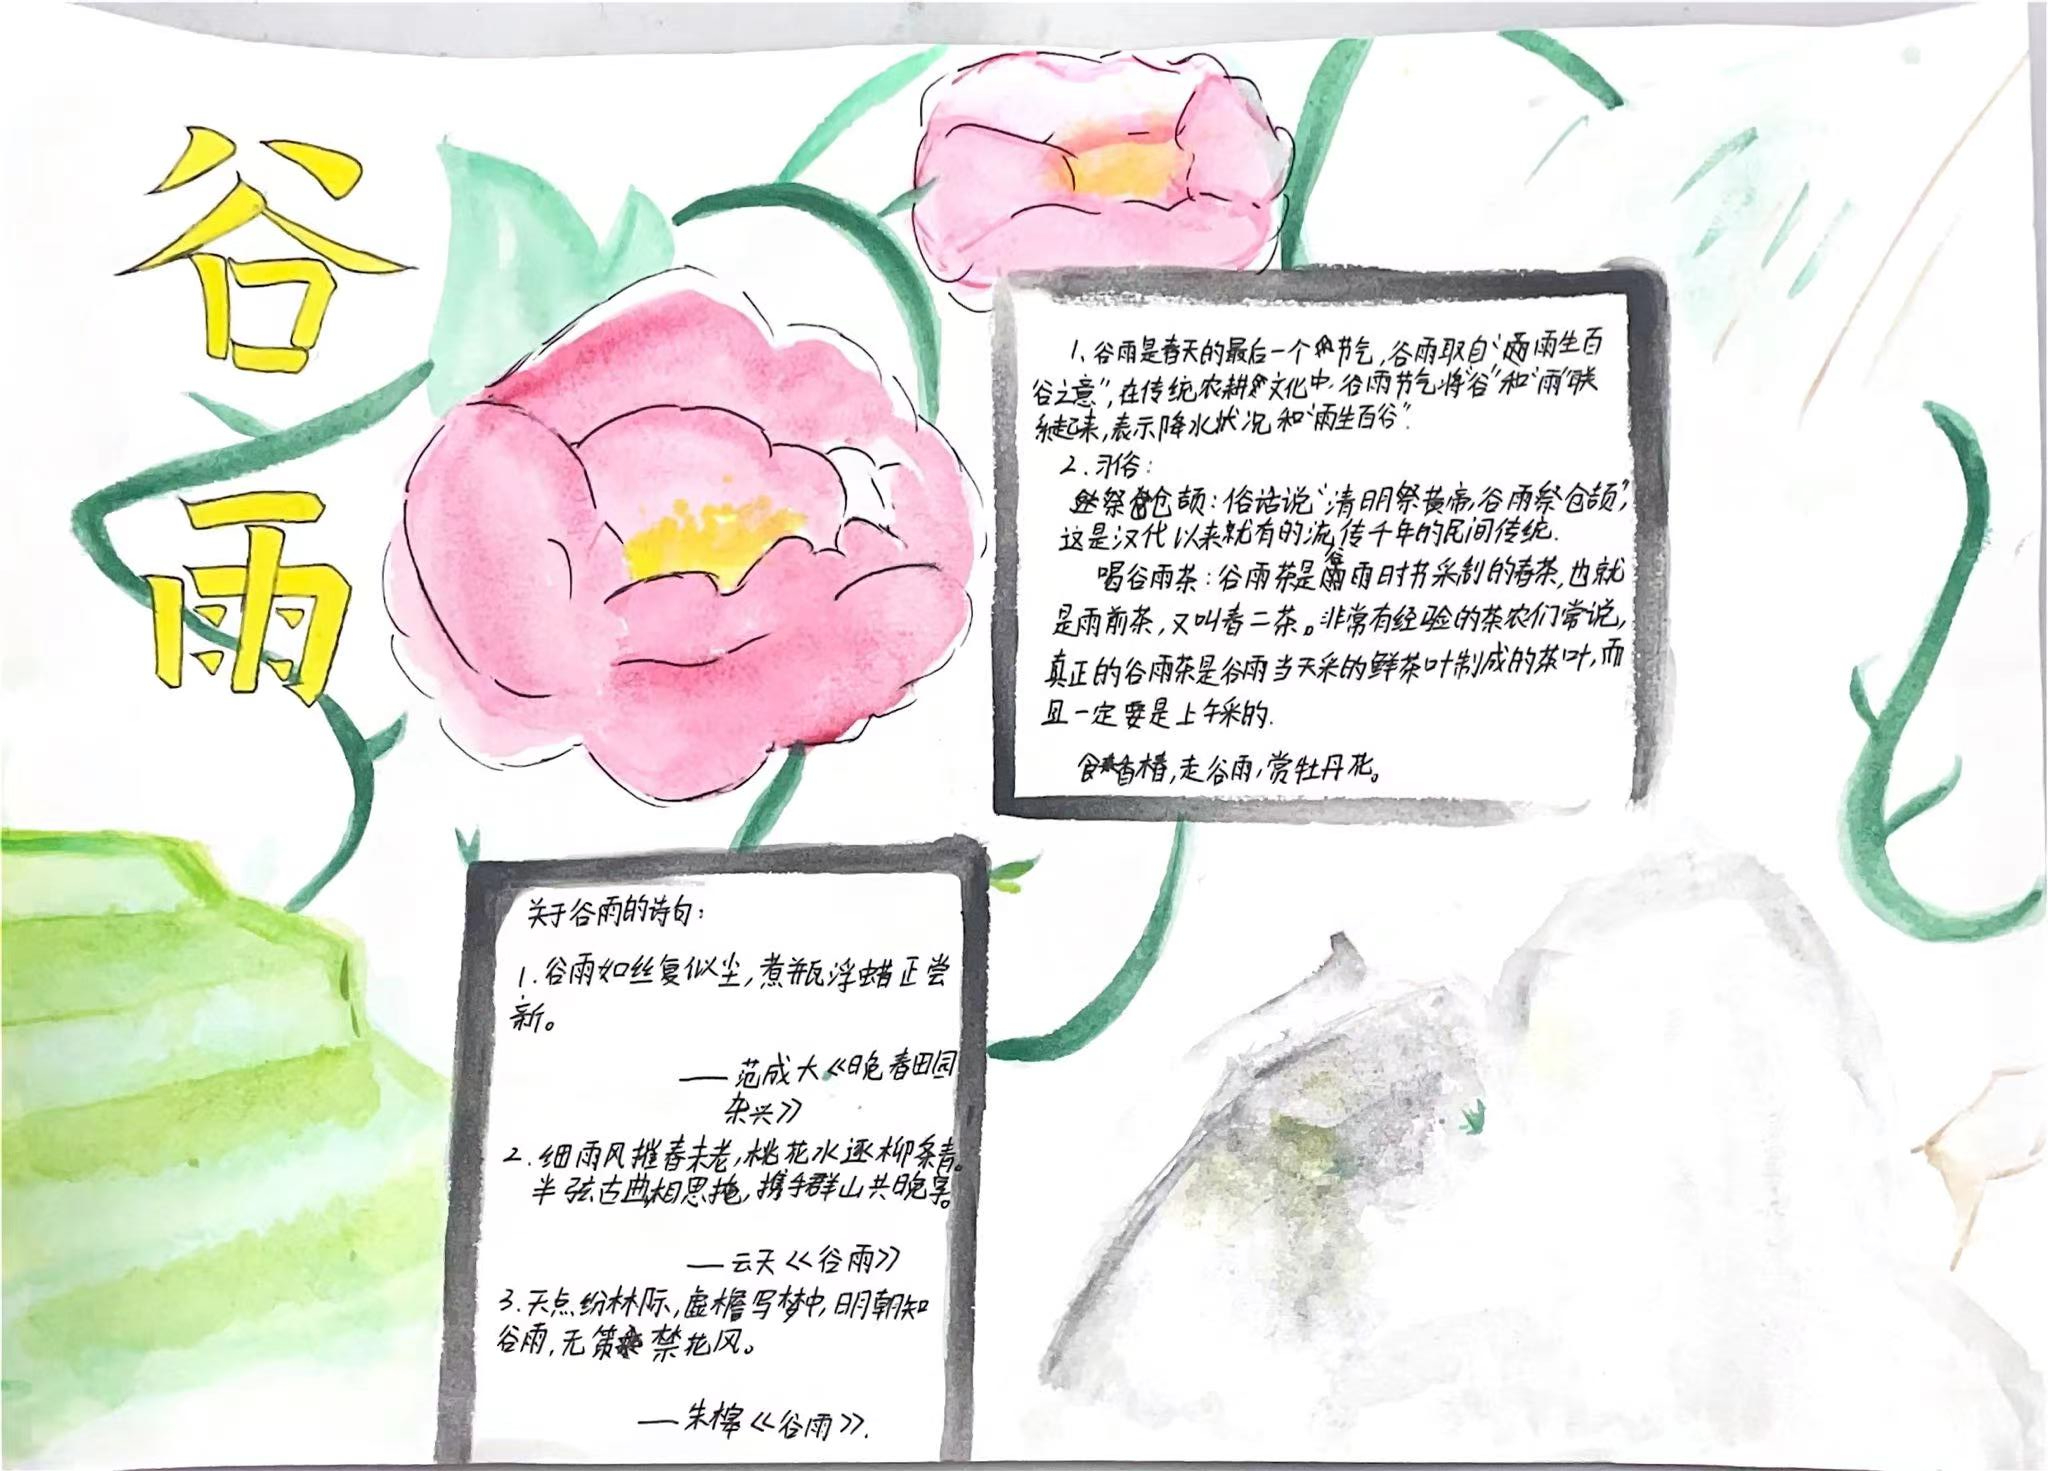 谷
雨
1、谷雨是春天的最后一个节气,谷雨取自“雨生百
谷之意”,在传统农耕文化中,谷雨节气将“谷”和“雨”联
系起来,表示降水状况和“雨生百谷”.
2.习俗:
祭仓颉:俗话说“清明祭黄帝,谷雨祭仓颉”,
这是汉代以来就有的流传千年的民间传统.
喝谷雨茶:谷雨茶是谷雨时节采制的春茶,也就
是雨前茶,又叫春二茶。非常有经验的茶农们常说,
真正的谷雨茶是谷雨当天采的鲜茶叶制成的茶叶,而
且一定要是上午采的.
食香椿,走谷雨,赏牡丹花。
关于谷雨的诗句:
1.谷雨如丝复似尘,煮瓶浮蜡正尝
新。
——范成大《晚春田园
杂兴》
2.细雨风摧春未老,桃花水逐柳条青。
半弦古曲,相思掩,携手群山共晚亭。
——云天《谷雨》
3.天点纷林际,虚檐写梦中,明朝知
谷雨,无策禁花风。
——朱槔《谷雨》.